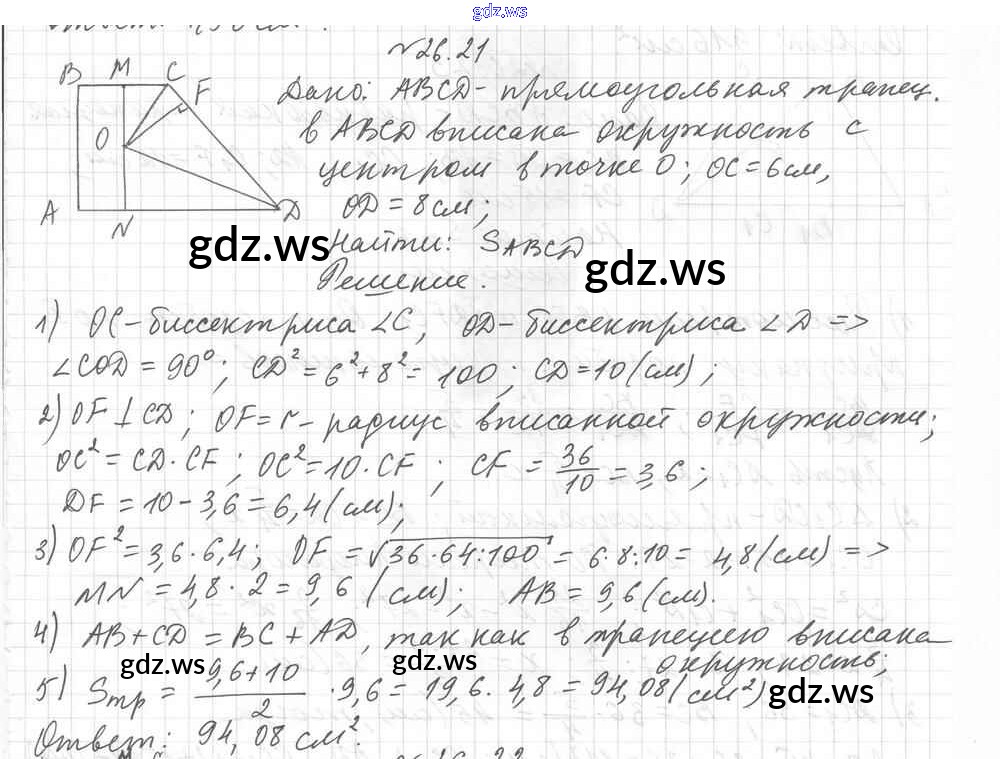 gdz.ws
№26.21
B M C F
O
A N D
Дано: ABCD - прямоугольная трапец.
в ABCD вписана окружность с
центром в точке O; OC = 6см,
OD = 8см;
Найти: S ABCD
gdz.ws
gdz.ws
Решение.
1) OC - биссектриса ∠C, OD - биссектриса ∠D =>
∠COD = 90°; CD² = 6² + 8² = 100; CD = 10 (см);
2) OF ⊥ CD; OF = r - радиус вписанной окружности;
OC² = CD · CF; OC² = 10 · CF; CF = 36/10 = 3,6;
DF = 10 - 3,6 = 6,4 (см);
3) OF² = 3,6 · 6,4; OF = √36·64:100 = 6·8:10 = 4,8 (см) =>
MN = 4,8 · 2 = 9,6 (см); AB = 9,6 (см).
4) AB + CD = BC + AD, так как в трапецию вписана
окружность;
gdz.ws
gdz.ws
5) Sтр = 9,6+10/2 · 9,6 = 19,6 · 4,8 = 94,08 (см²)
gdz.ws
Ответ: 94,08 см².
gdz.ws